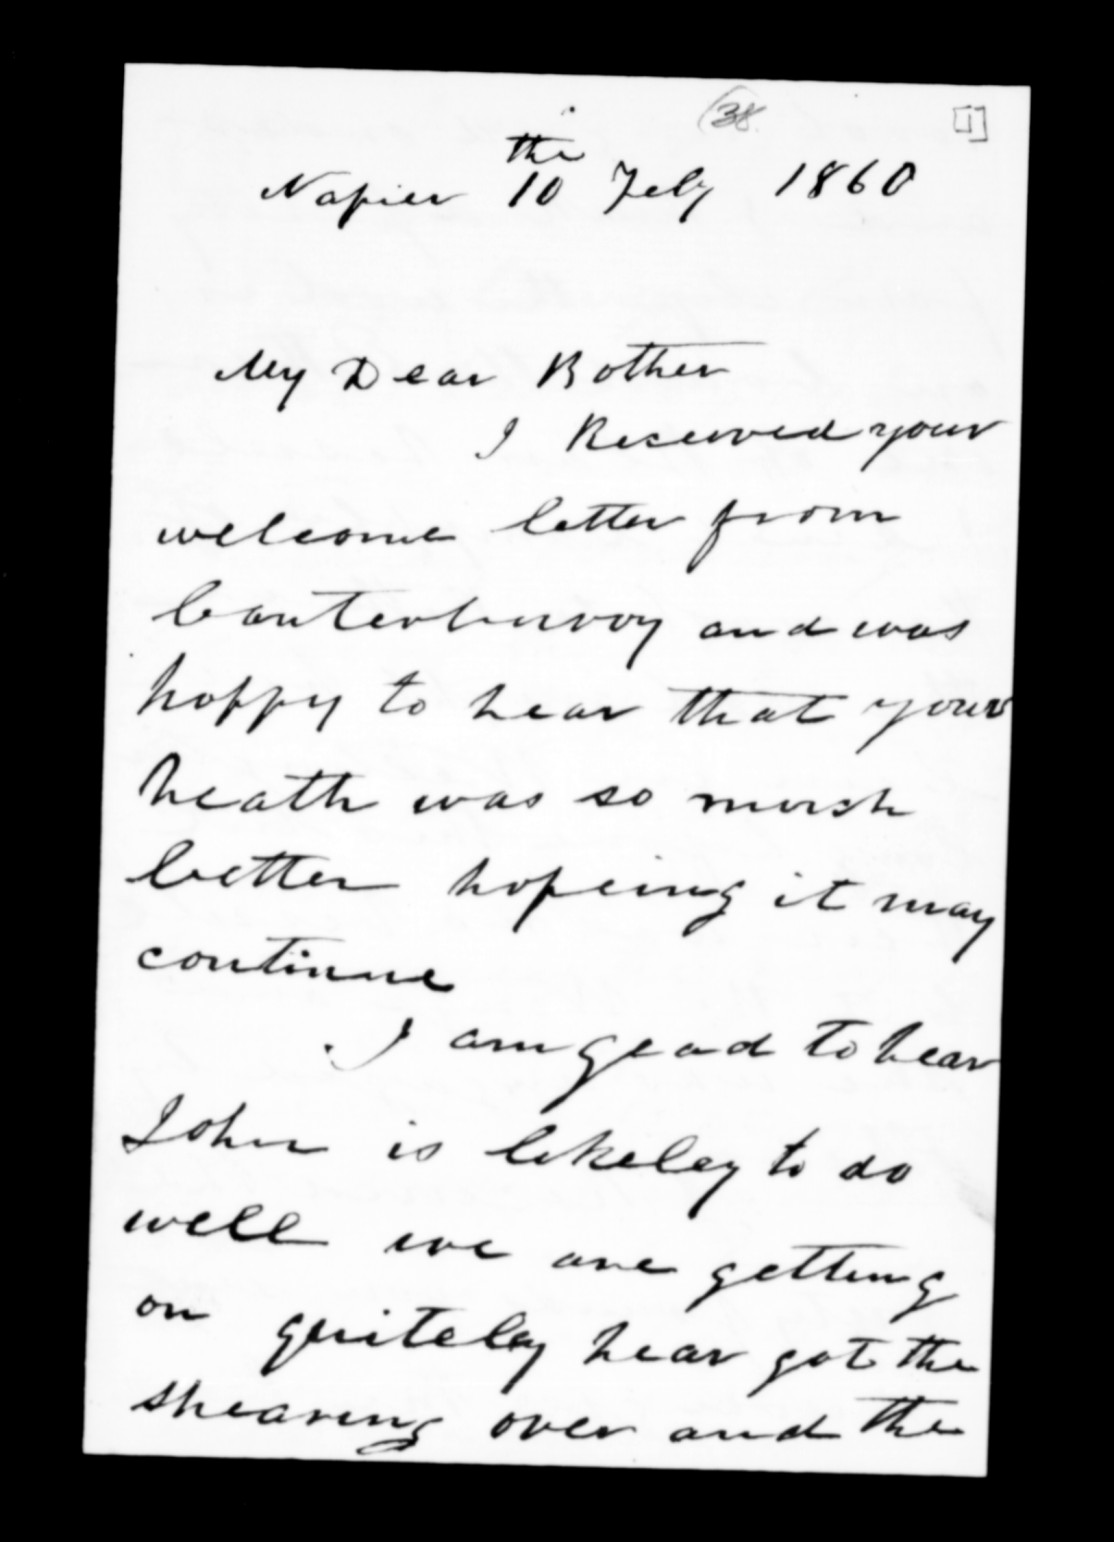 38.
[1]
the
Napier 10 Jely 1860
My Dear Bother
I Reserved your
welcome letter from
Canterburry and was
hoppy to hear that your
heath was so mush
better hopeing it may
continue
I am gead to hear
John is likeley to do
well we are getting
on quiteley hear got the
shearing over and the